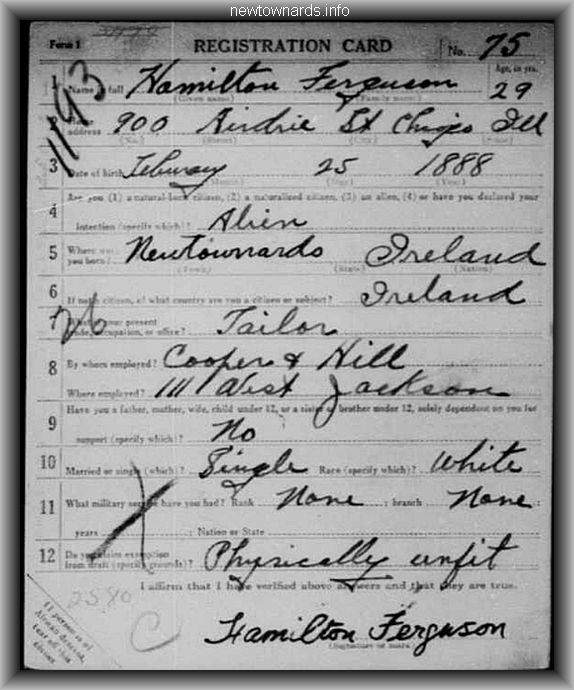 newtownards.info
Form 1 REGISTRATION CARD No. 75
1193
1 Name in full Hamilton Ferguson Age, in yrs. 29
(Given name) (Family name)
2 Home address 900 Airdrie St Chigo Ill
(No.) (Street) (City) (State)
3 Date of birth Febuary 25 1888
(Month) (Day) (Year)
4 Are you (1) a natural-born citizen, (2) a naturalized citizen, (3) an alien, (4) or have you declared your
intention (specify which)? Alien
5 Where were you born? Newtownards Ireland
(Town) (State) (Nation)
6 If not a citizen, of what country are you a citizen or subject? Ireland
7 What is your present trade, occupation, or office? Tailor
8 By whom employed? Cooper & Hill
Where employed? 111 West Jackson
9 Have you a father, mother, wife, child under 12, or a sister or brother under 12, solely dependent on you for
support (specify which)? No
10 Married or single (which)? Single Race (specify which)? White
11 What military service have you had? Rank None ; branch None ;
years ; Nation or State
12 Do you claim exemption from draft (specify grounds)? Physically unfit
I affirm that I have verified above answers and that they are true.
2580
C
Hamilton Ferguson
(Signature or mark)
If person is of
African descent,
tear off this
corner